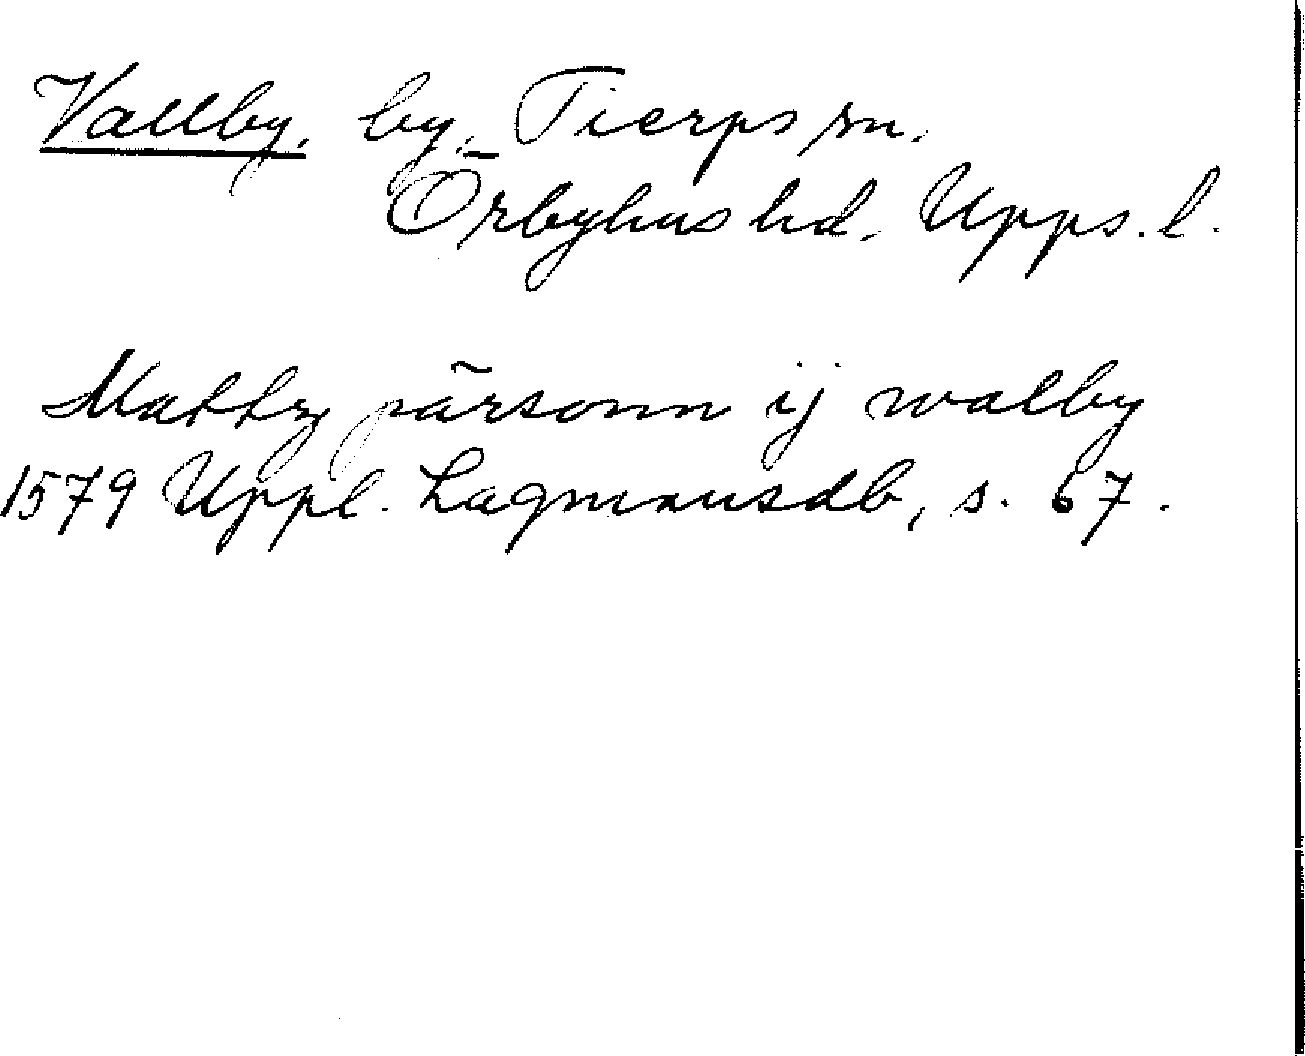 Vallby, by, Tierps sn.
Örbyhus hd. Upps. l.
Mattz pärsonn ij walby
1579 Uppl. Lagmansdb, s. 67.